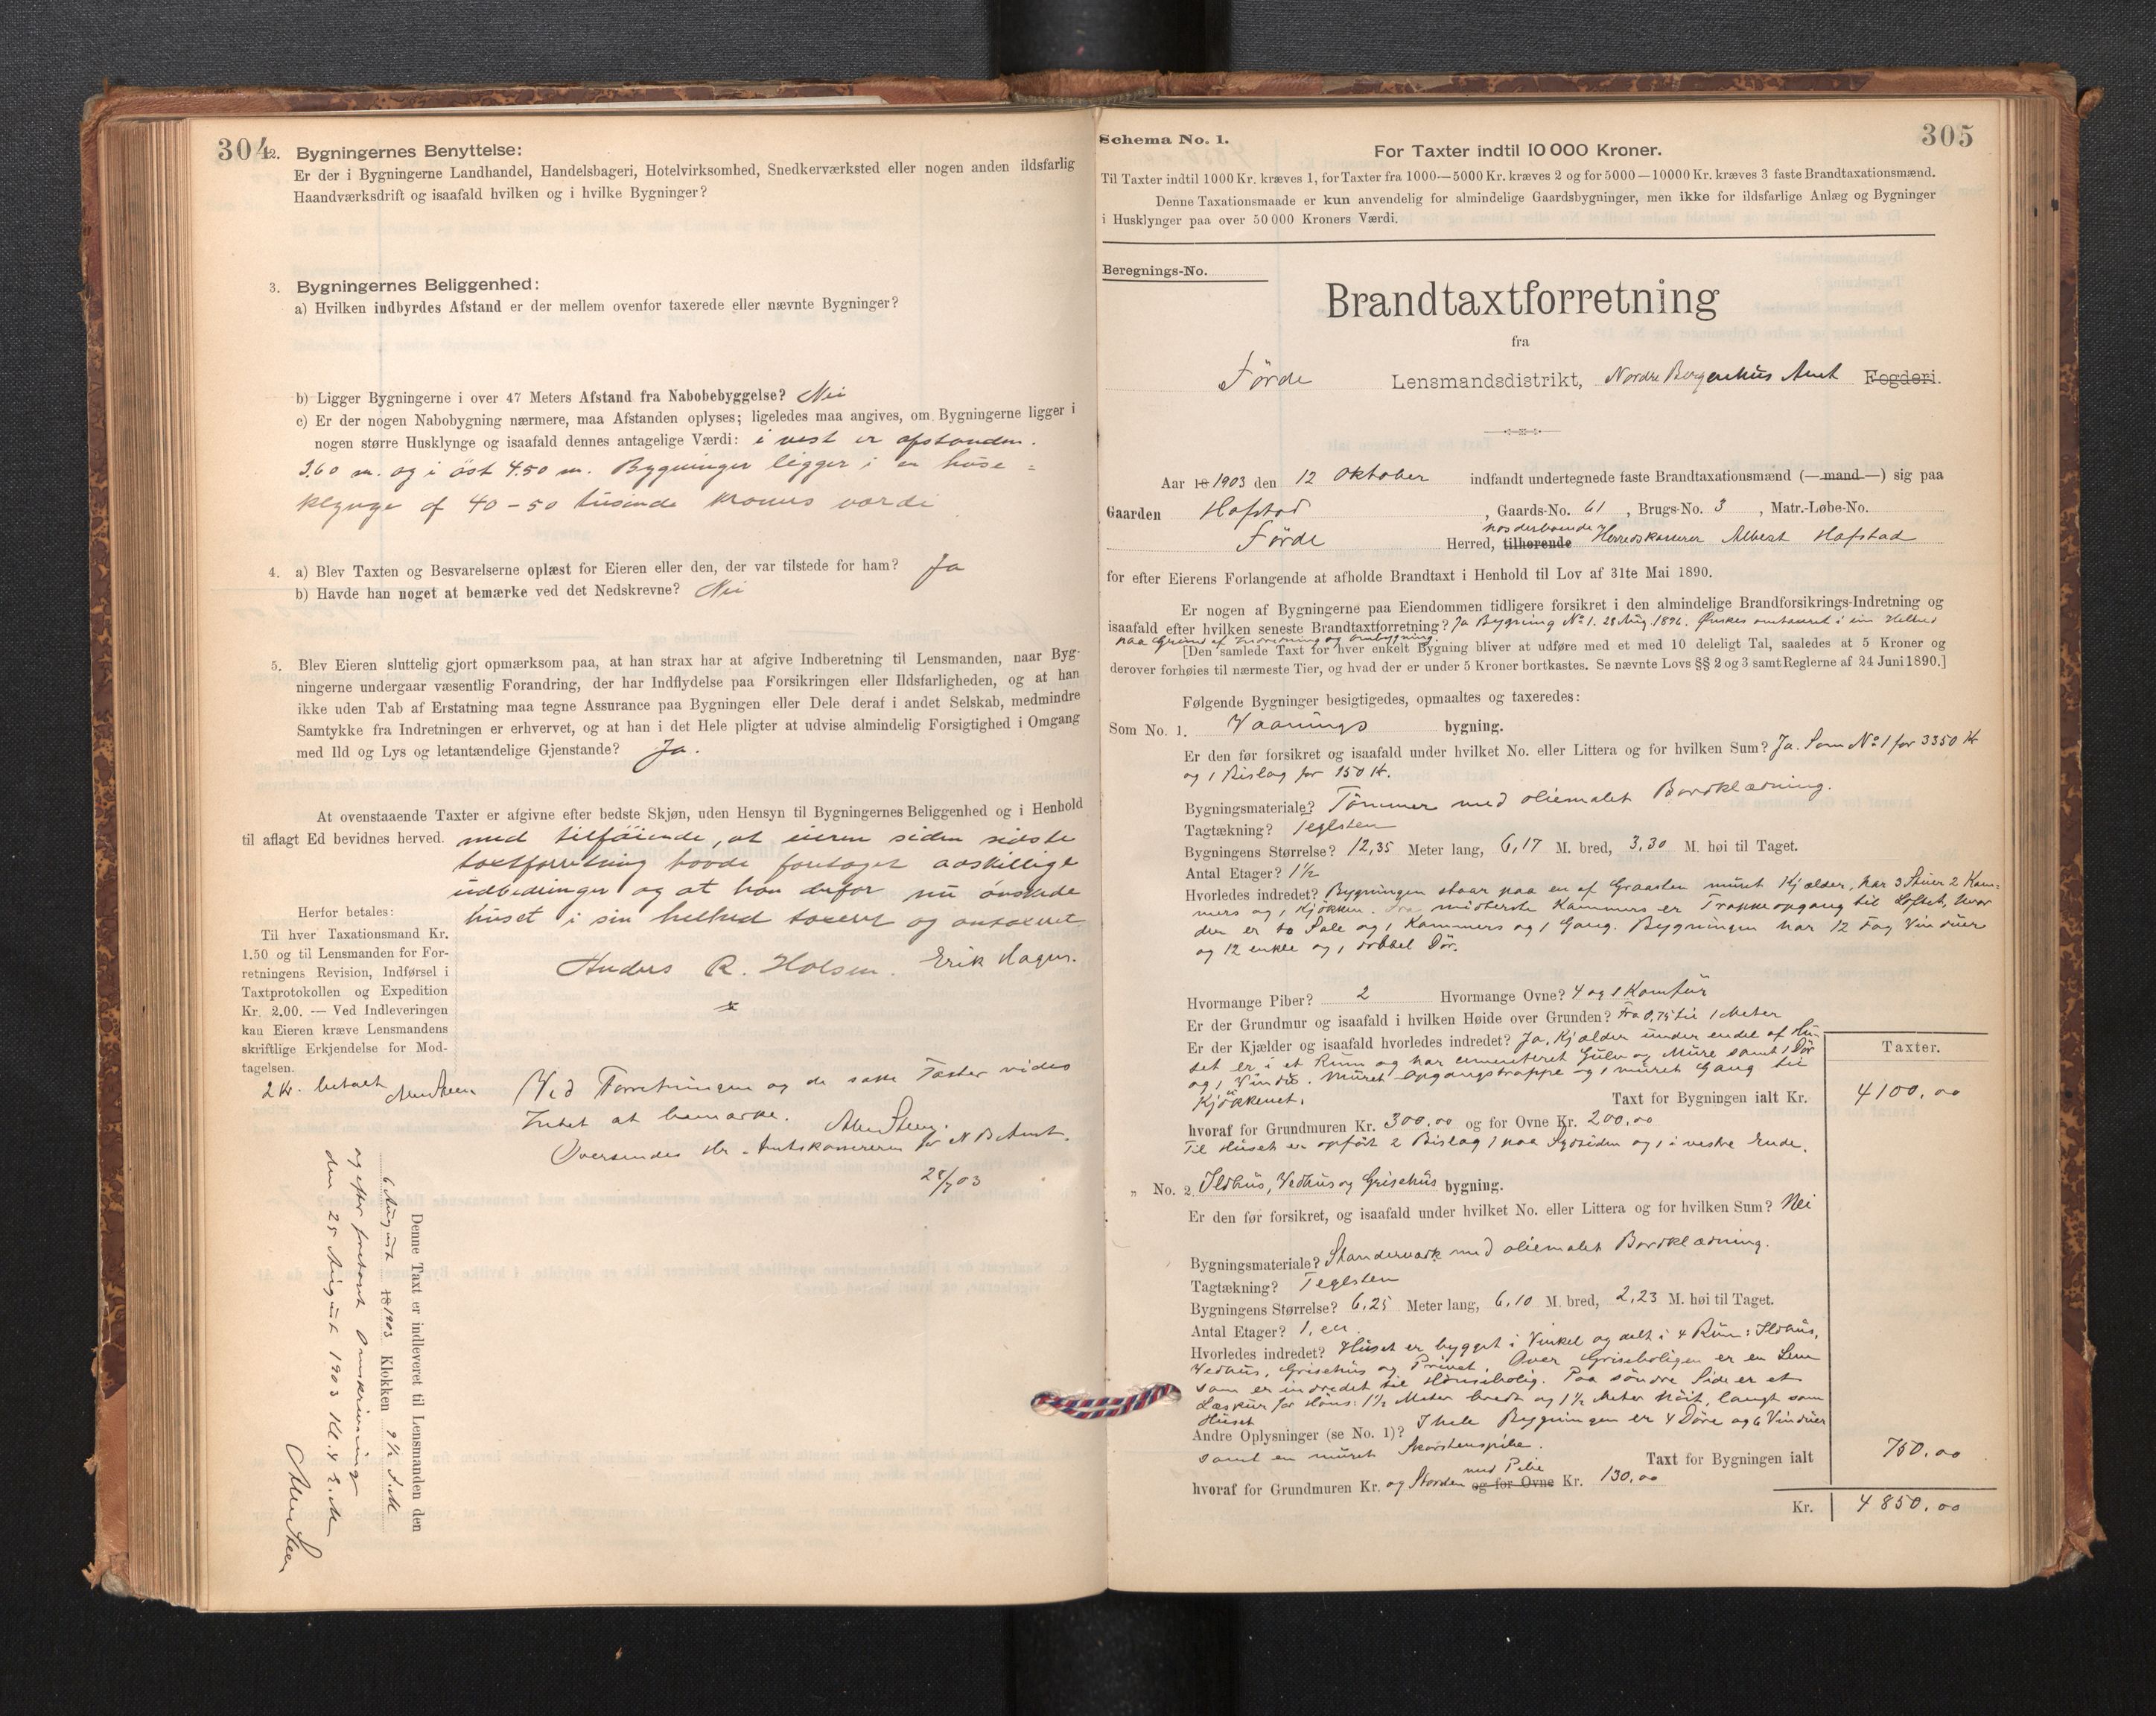 304
2. Bygningernes Benyttelse:
Er der i Bygningerne Landhandel, Handelsbageri, Hotelvirksomhed, Snedkerværksted eller nogen anden ildsfarlig
Haandværksdrift og isaafald hvilken og i hvilke Bygninger?
3. Bygningernes Beliggenhed:
a) Hvilken indbyrdes Afstand er der mellem ovenfor taxerede eller nævnte Bygninger?
b) Ligger Bygningerne i over 47 Meters Afstand fra Nabobebyggelse? Nei
c) Er der nogen Nabobygning nærmere, maa Afstanden oplyses; ligeledes maa angives, om Bygningerne ligger i
nogen større Husklynge og isaafald dennes antagelige Værdi: i vest er afstanden
3.60 m. og i öst 4.50 m. Bygninger ligger i en huse=
klynge af 40-50 tusinde kroners værdi
4. a) Blev Taxten og Besvarelserne oplæst for Eieren eller den, der var tilstede for ham? Ja
b) Havde han noget at bemærke ved det Nedskrevne? Nei
5. Blev Eieren sluttelig gjort opmærksom paa, at han strax har at afgive Indberetning til Lensmanden, naar Byg-
ningerne undergaar væsentlig Forandring, der har Indflydelse paa Forsikringen eller Ildsfarligheden, og at han
ikke uden Tab af Erstatning maa tegne Assurance paa Bygningen eller Dele deraf i andet Selskab, medmindre
Samtykke fra Indretningen er erhvervet, og at han i det Hele pligter at udvise almindelig Forsigtighed i Omgang
med Ild og Lys og letantændelige Gjenstande? Ja.
At ovenstaaende Taxter er afgivne efter bedste Skjøn, uden Hensyn til Bygningernes Beliggenhed og i Henhold
til aflagt Ed bevidnes herved. med tilföiende, at eieren siden sidste
taxtforretning havde foretaget adskillige
udbedringer og at han derfor nu önskede
huset i sin helhed taxeret og omtaxeret
Anders R. Holsen. Erik Hagen.
Herfor betales:
Til hver Taxationsmand Kr.
1.50 og til Lensmanden for For-
retningens Revision, Indførsel i
Taxtprotokollen og Expedition
Kr. 2.00. — Ved Indleveringen
kan Eieren kræve Lensmandens
skriftlige Erkjendelse for Mod-
tagelsen.
2 Kr. betalt
Ved Forretningen og de satte Taxter vides
Intet at bemærke.
Oversendes Hr. Amtskassereren for N B Amt.
Denne Taxt er indleveret til Lensmanden den
6 August 18 1903 Klokken 9½ F.M
og efter foretaget Omskrivning
den 25 August 1903 Kl. 4 E.M
305
Schema No. 1.
For Taxter indtil 10 000 Kroner.
Til Taxter indtil 1000 Kr. kræves 1, for Taxter fra 1000—5000 Kr. kræves 2 og for 5000—10000 Kr. kræves 3 faste Brandtaxationsmænd.
Denne Taxationsmaade er kun anvendelig for almindelige Gaardsbygninger, men ikke for ildsfarlige Anlæg og Bygninger
i Husklynger paa over 50 000 Kroners Værdi.
Beregnings-No.
Brandtaxtforretning
fra
Förde Lensmandsdistrikt, Nordre Bergenhus Amt Fogderi.
Aar 18 1903 den 12 Oktober indfandt undertegnede faste Brandtaxationsmænd (—mand—) sig paa
Gaarden Hafstad, Gaards-No. 61, Brugs-No. 3, Matr.-Løbe-No.
Förde Herred, tilhørende hos derboende Herredskasserer Albert Hafstad
for efter Eierens Forlangende at afholde Brandtaxt i Henhold til Lov af 31te Mai 1890.
Er nogen af Bygningerne paa Eiendommen tidligere forsikret i den almindelige Brandforsikrings-Indretning og
isaafald efter hvilken seneste Brandtaxtforretning? Ja Bygning No 1. 28 Aug. 1896. Ønskes omtaxeret i sin Helhed
paa Grund af Indredning og Ombygning.
[Den samlede Taxt for hver enkelt Bygning bliver at udføre med et med 10 deleligt Tal, saaledes at 5 Kroner og
derover forhøies til nærmeste Tier, og hvad der er under 5 Kroner bortkastes. Se nævnte Lovs §§ 2 og 3 samt Reglerne af 24 Juni 1890.]
Følgende Bygninger besigtigedes, opmaaltes og taxeredes:
Som No. 1. Vaanings bygning.
Er den før forsikret og isaafald under hvilket No. eller Littera og for hvilken Sum? Ja. Som No 1 for 3350 Kr
og 1 Bislag for 150 Kr.
Bygningsmateriale? Tömmer med oliemalet Bordklædning.
Tagtækning? Teglsten
Bygningens Størrelse? 12,35 Meter lang, 6,17 M. bred, 3,30 M. høi til Taget.
Antal Etager? 1½
Hvorledes indredet? Bygningen staar paa en af Graasten muret Kjælder, har 3 Stuer 2 Kam-
mers og 1 Kjökken. Fra midterste Kammers er Trappeopgang til Loftet, hvor
der er to Sale og 1 Kammers og 1 Gang. Bygningen har 12 Fag Vinduer
og 12 enkle og 1 dobbel Dör.
Hvormange Piber? 2 Hvormange Ovne? 4 og 1 Komfür
Er der Grundmur og isaafald i hvilken Høide over Grunden? Fra 0,75 til 1 Meter
Er der Kjælder og isaafald hvorledes indredet? Ja, Kjælder under endel af Hu-
set er i et Rum og har cementeret Gulv og Mure samt 1 Dör
og 1 Vindü. Muret Opgangstrappe og 1 muret Gang til
Kjökkenet.
Taxter.
Taxt for Bygningen ialt Kr. 4100,00
hvoraf for Grundmuren Kr. 300,00 og for Ovne Kr. 200,00
Til Huset er opfört 2 Bislag 1 paa Sydsiden og 1 i vestre Ende.
„ No. 2 Ildhus, Vedhus og Grisehus bygning.
Er den før forsikret, og isaafald under hvilket No. eller Littera og for hvilken Sum? Nei
Bygningsmateriale? Standerværk med oliemalet Bordklædning.
Tagtækning? Teglsten
Bygningens Størrelse? 6,25 Meter lang, 6,10 M. bred, 2,23 M. høi til Taget.
Antal Etager? 1, en
Hvorledes indredet? Huset er bygget i Vinkel og delt i 4 Rum: Ildhus,
Vedhus, Grisehus og Privet. Over Griseboligen er en Lem
som er indredet til Hönsebolig. Paa söndre Side er et
Læskur for Höns: 1½ Meter bredt og 1½ Meter höit, langt som
Huset
Andre Oplysninger (se No. 1)? I hele Bygningen er 4 Döre og 6 Vinduer
samt en muret Skorstenspibe.
Taxt for Bygningen ialt 750,00
hvoraf for Grundmuren Kr. og Skorsten med Pibe og for Ovne Kr. 130,00
Kr. 4850,00